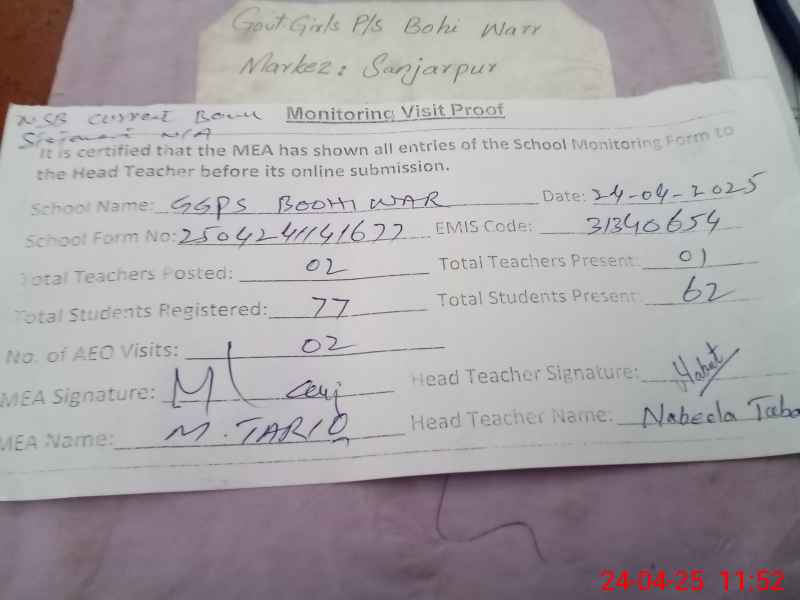 Govt. Girls P/s Bohi Warr
Markez: Sanjarpur
NSB Current Bank
Statement N/A
Monitoring Visit Proof
It is certified that the MEA has shown all entries of the School Monitoring Form to
the Head Teacher before its online submission.
School Name: GGPS BOOHI WAR Date: 24-04-2025
School Form No: 2504241141677 EMIS Code: 31340654
Total Teachers Posted: 02 Total Teachers Present: 01
Total Students Registered: 77 Total Students Present: 62
No. of AEO Visits: 02
MEA Signature: Head Teacher Signature:
MEA Name: M. TARIQ Head Teacher Name: Nabeela
24-04-25 11:52